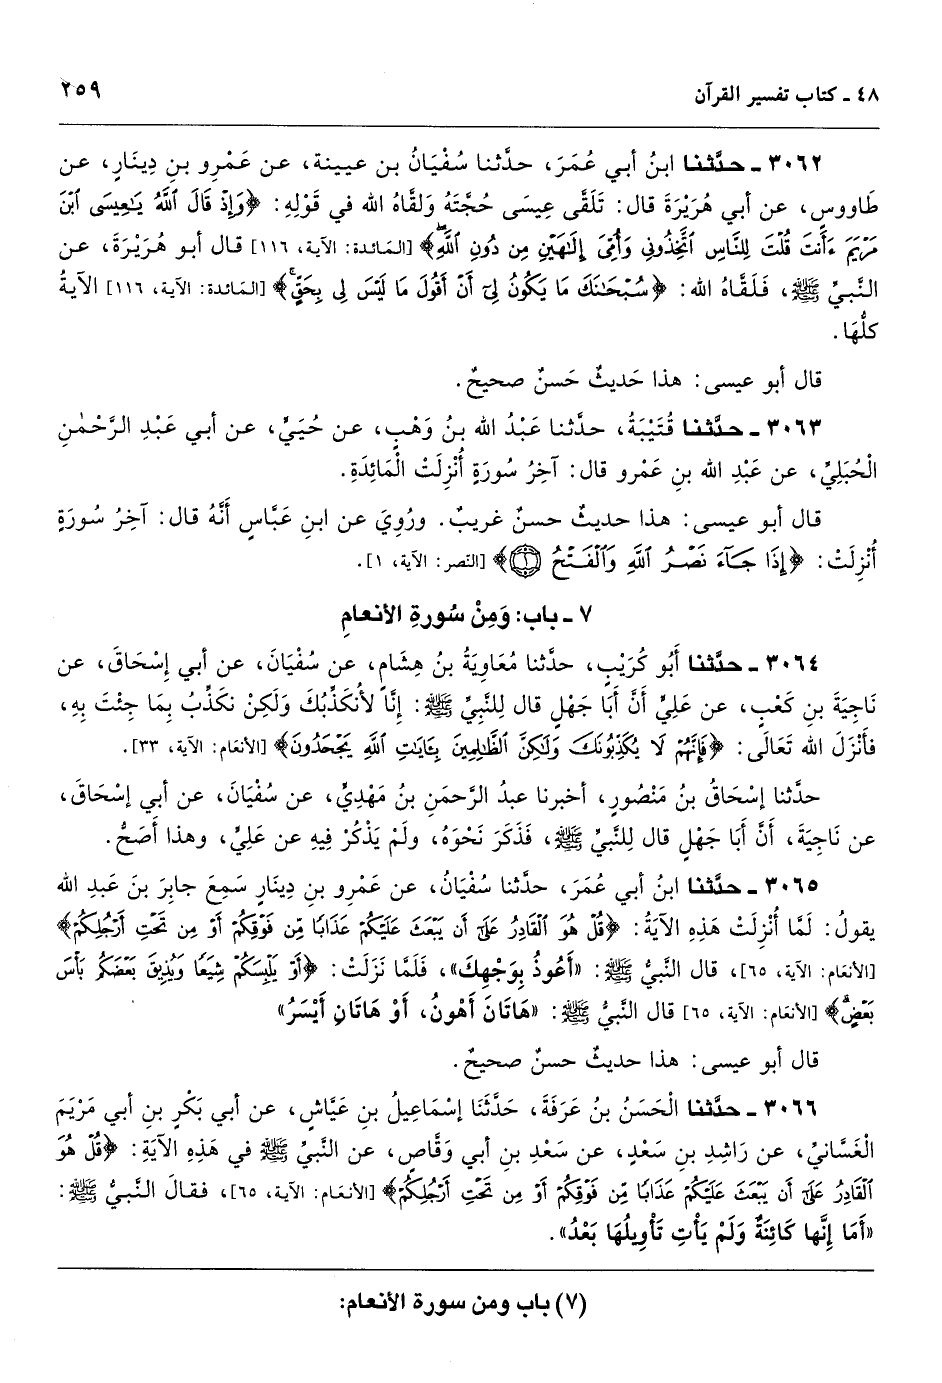 ٤٨ ـ كتاب تفسير القرآن ٢٥٩
٣٠٦٢ ـ حدَّثنا ابنُ أبي عُمَرَ، حدَّثنا سُفْيَانُ بن عيينة، عن عَمْرِو بنِ دِينَارٍ، عن
طَاووسٍ، عن أبي هُرَيْرَةَ قال: تَلَقَّى عِيسَى حُجَّتَهُ وَلقَّاهُ الله في قَوْلِهِ: ﴿وَإِذْ قَالَ ٱللَّهُ يَٰعِيسَى ٱبْنَ
مَرْيَمَ ءَأَنتَ قُلْتَ لِلنَّاسِ ٱتَّخِذُونِي وَأُمِّيَ إِلَٰهَيْنِ مِن دُونِ ٱللَّهِ﴾ [المَائدة: الآية، ١١٦] قال أبو هُرَيْرَةَ، عن
النَّبيِّ ﷺ، فَلَقَّاهُ الله: ﴿سُبْحَٰنَكَ مَا يَكُونُ لِيٓ أَنْ أَقُولَ مَا لَيْسَ لِي بِحَقٍّ﴾ [المَائدة: الآية، ١١٦] الآيةُ
كلُّهَا.
قال أبو عيسى: هذا حَديثٌ حَسنٌ صحيحٌ.
٣٠٦٣ ـ حدَّثنا قُتَيْبَةُ، حدَّثنا عَبْدُ الله بنُ وَهْبٍ، عن حُيَيٍّ، عن أبي عَبْدِ الرَّحْمٰنِ
الْحُبَلِيِّ، عن عَبْدِ الله بنِ عَمْرو قال: آخِرُ سُورَةٍ أُنْزِلَتْ الْمَائِدَةِ.
قال أبو عيسى: هذا حديثٌ حسنٌ غريبٌ. ورُوِيَ عن ابنِ عَبَّاسٍ أَنَّهُ قال: آخِرُ سُورَةٍ
أُنْزِلَتْ: ﴿إِذَا جَآءَ نَصْرُ ٱللَّهِ وَٱلْفَتْحُ ١﴾ [النّصر: الآية، ١].
٧ ـ باب: وَمِنْ سُورةِ الأنعامِ
٣٠٦٤ ـ حدَّثنا أَبُو كُرَيْبٍ، حدَّثنا مُعَاوِيَةُ بنُ هِشَامٍ، عن سُفْيَانَ، عن أبي إسْحَاقَ، عن
نَاجِيَةَ بنِ كَعْبٍ، عن عَلِيٍّ أنَّ أبَا جَهْلٍ قال لِلنَّبيِّ ﷺ: إنَّا لاَنُكَذِّبُكَ وَلَكِنْ نكَذِّبُ بِمَا جِئْتَ بِهِ،
فأَنْزَلَ الله تَعَالَى: ﴿فَإِنَّهُمْ لَا يُكَذِّبُونَكَ وَلَٰكِنَّ ٱلظَّٰلِمِينَ بِـَٔايَٰتِ ٱللَّهِ يَجْحَدُونَ﴾ [الأنعَام: الآية، ٣٣].
حدَّثنا إسْحَاقُ بنُ مَنْصُورٍ، أخبرنا عبدُ الرَّحمَنِ بنُ مَهْدِيٍّ، عن سُفْيَانَ، عن أبي إسْحَاقَ،
عن نَاجِيَةَ، أنَّ أبَا جَهْلٍ قال لِلنَّبيِّ ﷺ، فَذَكَرَ نَحْوَهُ، ولَمْ يَذْكُرْ فِيهِ عن عَلِيٍّ، وهذا أصَحُّ.
٣٠٦٥ ـ حدَّثنا ابنُ أبي عُمَرَ، حدَّثنا سُفْيَانُ، عن عَمْرِو بنِ دِينَارٍ سَمِعَ جابِرَ بنَ عَبدِ الله
يقولُ: لَمَّا أُنْزِلَتْ هَذِهِ الآيَةُ: ﴿قُلْ هُوَ ٱلْقَادِرُ عَلَىٰٓ أَن يَبْعَثَ عَلَيْكُمْ عَذَابًا مِّن فَوْقِكُمْ أَوْ مِن تَحْتِ أَرْجُلِكُمْ﴾
[الأنعَام: الآية، ٦٥]، قال النَّبيُّ ﷺ: «أَعُوذُ بِوَجْهِكَ»، فَلَمَّا نَزَلَتْ: ﴿أَوْ يَلْبِسَكُمْ شِيَعًا وَيُذِيقَ بَعْضَكُم بَأْسَ
بَعْضٍ﴾ [الأنعَام: الآية، ٦٥] قال النَّبيُّ ﷺ: «هَاتَانَ أَهْونُ، أَوْ هَاتَانِ أَيْسَرُ»
قال أبو عيسى: هذا حديثٌ حسنٌ صحيحٌ.
٣٠٦٦ ـ حدَّثنا الْحَسَنُ بنُ عَرَفَةَ، حَدَّثَنَا إسْمَاعِيلُ بنِ عَيَّاشٍ، عن أبي بَكْرِ بنِ أبي مَرْيَمَ
الْغَسَّانيِّ، عن رَاشِدِ بنِ سَعْدٍ، عن سَعْدِ بنِ أبي وَقَّاصٍ، عن النَّبيِّ ﷺ في هَذِهِ الآيَةِ: ﴿قُلْ هُوَ
ٱلْقَادِرُ عَلَىٰٓ أَن يَبْعَثَ عَلَيْكُمْ عَذَابًا مِّن فَوْقِكُمْ أَوْ مِن تَحْتِ أَرْجُلِكُمْ﴾ [الأنعَام: الآية، ٦٥]، فقالَ النَّبيُّ ﷺ:
«أَمَا إِنَّها كَائِنَةٌ وَلَمْ يَأْتِ تَأْوِيلُهَا بَعْدُ».
(٧) باب ومن سورة الأنعام: